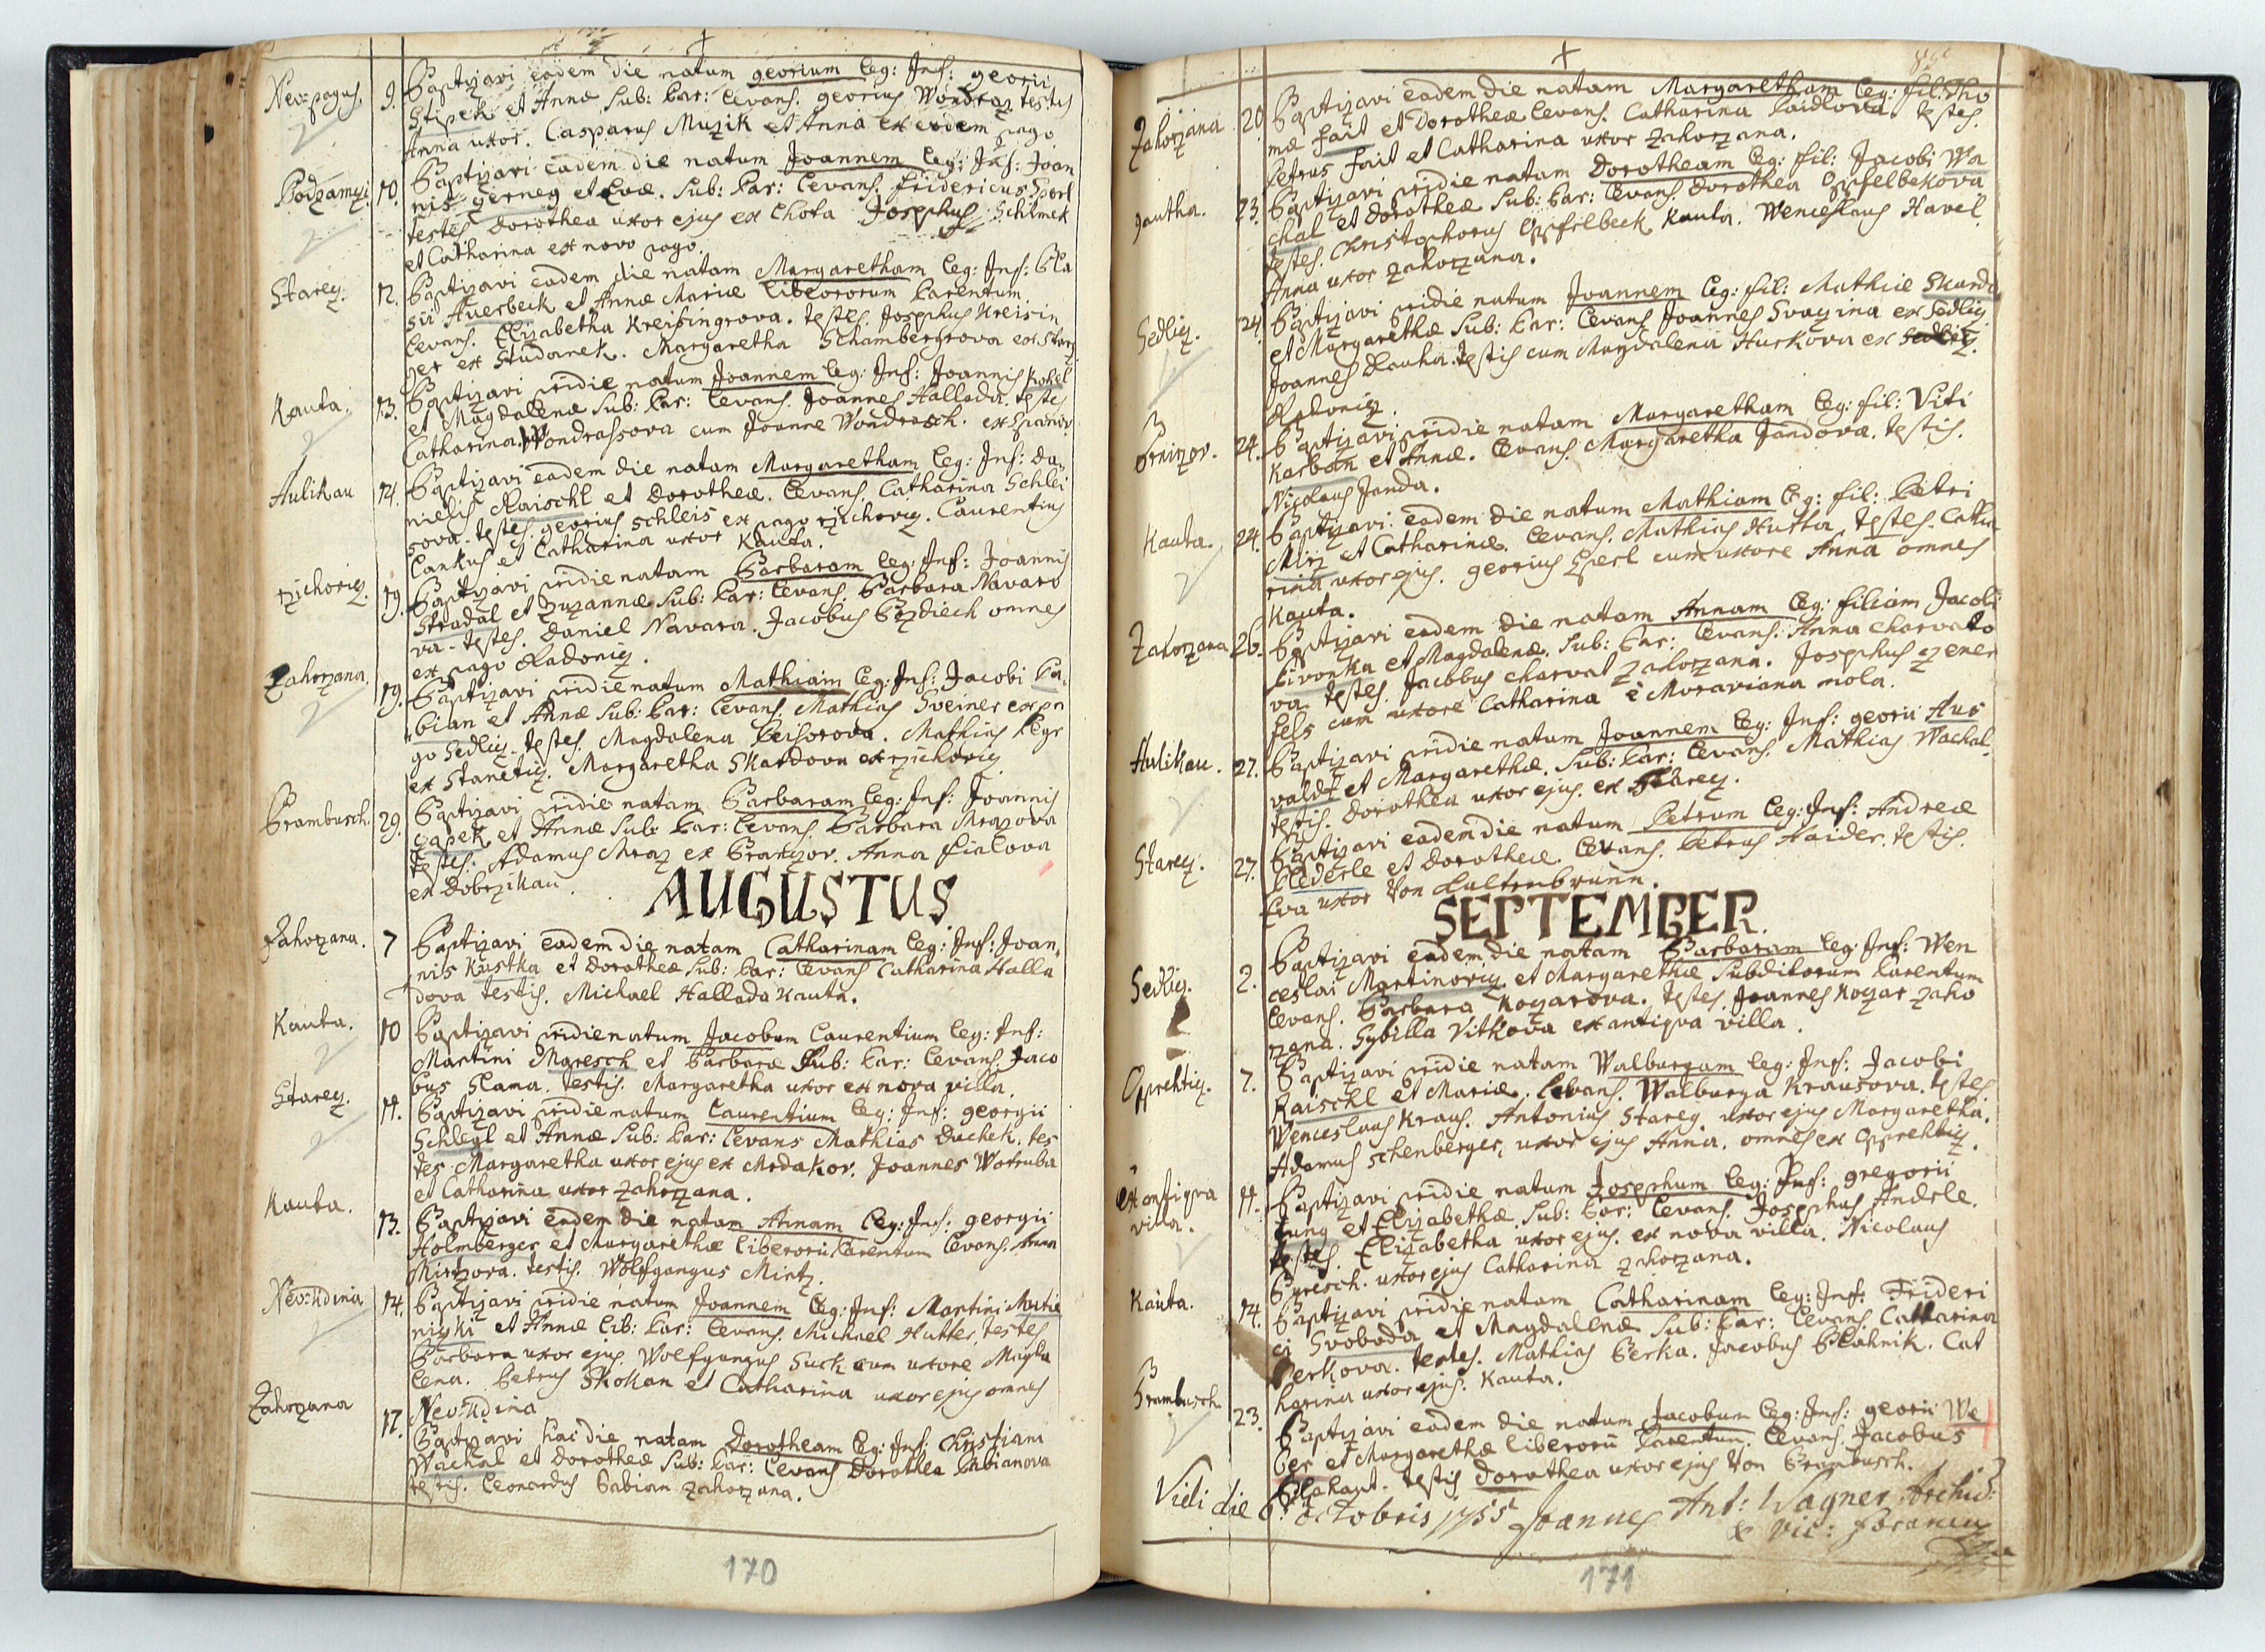 Neo: pagus. 9. Baptizavi eadem die natum georium leg: Inf: georii
Stipek et Annæ Sub: Par: levans. georius Wondraz testis
Anna uxor. Casparus Muzik et Anna ex eodem pago
Podzamczi. 10. Baptizavi eadem die natum Joannem leg: Inf: Joan
nis gerneg et Evæ. Sub: Par: levans. fridericus Sperl
testes Dorothea uxor ejus ex Lhota Josephus Schimek
et Catharina ex novo pago.
Starecz. 12. Baptizavi eadem die natam Margaretham leg: Inf: Bla
sii Auerbeck et Annæ Mariæ liberorum Parentum.
levans. Elizabetha Kreisingrova. testes. Josephus Kreisin
ger ex Studanek. Margaretha Schambergrova ex Starz.
Kauta. 13. Baptizavi pridie natum Joannem leg: Inf: Joannis
et Magdalenæ Sub: Par: levans. Joannes Hallada. testes
Catharina Wondrassova cum Joanne Wondrasch. ex Spanov
Aulikau 14. Baptizavi eadem die natam Margaretham leg: Inf: Da
nielis Raischl et Dorotheæ. levans. Catharina Schlei
sova. testes. georius Schleis ex pago rzichovicz. Laurentius
Lankus et Catharina uxor Kauta.
rzichovicz. 19. Baptizavi pridie natam Barbaram leg: Inf: Joannis
Stradal et Zuzannæ Sub: Par: levans. Barbara Navaro
va. testes. Daniel Navara. Jacobus Bezdiech omnes
ex pago Radonicz.
Zahorzana. 19. Baptizavi pridie natum Mathiam leg: Inf: Jacobi Fa
bian et Annæ Sub: Par: levans. Mathias Sveiner ex pa
go Sedlicz. testes. Magdalena Leisorova. Mathias
ex Staneticz. Margaretha Skardova ex rzichovicz
Prambusch. 29. Baptizavi pridie natam Barbaram leg: Inf: Joannis
czapek et Annæ Sub: Par: levans. Barbara Mrazova
testes: Adamus Mraz ex Branczov. Anna fialova
ex Dobrzikau.
AUGUSTUS
Zahorzana. 7 Baptizavi eadem die natam Catharinam leg: Inf: Joan
nis Kustka et Dorotheæ Sub: Par: levans Catharina Halla
dova testis. Michael Hallada Kauta.
Kauta. 10 Baptizavi pridie natum Jacobum Laurentium leg: Inf:
Martini Maresch et Barbaræ Sub: Par: levans. Jaco
bus Slama. testis. Margaretha uxor ex nova villa.
Starecz. 11. Baptizavi pridie natum Laurentium leg: Inf: georgii
Schlegl et Annæ Sub: Par: levans Mathias Duchek. tes
tes Margaretha uxor ejus ex Mrdakov. Joannes Wotruba
et Catharina uxor zahorzana.
Kauta. 13. Baptizavi eadem die natam Annam leg: Inf: georgii
Holmberger et Margarethæ liberorū Parentum levans. Anna
Mirtzova. testis. Wolfgangus Mirtz.
Neo: Udina 14. Baptizavi pridie natum Joannem leg: Inf: Martini Mutie
niczki et Annæ lib: Par: levans. Michael Hutter, testes
Barbara uxor ejus. Wolfgangus Suck cum uxore Magda
lena. Petrus Skokan et Catharina uxor ejus omnes
Neo: Udina
Zahorzana 17. Baptizavi hac die natam Dorotheam leg: Inf: Christiani
Wachal et Dorotheæ Sub: Par: levans Dorothea Fabianova
testis. Leonardus Fabian zahorzana.
170
Zahorzana 20. Baptizavi eadem die natam Margaretham leg: fil: Tho
mæ fait et Dorotheæ levans. Catharina Paidlova. testes.
Petrus fait et Catharina uxor zahorzana.
Kautha. 23. Baptizavi pridie natam Dorotheam leg: fil: Jacobi Wa
chal et Dorotheæ Sub: Par: levans. Dorothea Opfelbekova
testes. Christophorus Opfelbeck Kauta. Wenceslaus Havel
Anna uxor zahorzana.
Sedlicz. 24. Baptizavi pridie natum Joannem leg: fil: Mathiæ Skarda
et Margarethæ Sub: Par: levans Joannes Svaczina ex Sedlicz
Joannes Dlauha. testis cum Magdalena Hurkova ex Sedlicz.
Radonicz.
Branczov. 24. Baptizavi pridie natam Margaretham leg: fil: Viti
Karban et Annæ. levans. Margaretha Jandova. testis.
Nicolaus Janda.
Kauta. 24. Baptizavi eadem die natum Mathiam leg: fil: Petri
Mirz et Catharinæ. levans. Mathias Hutta, testes. Catha
rina uxor ejus. georius Sperl cum uxore Anna omnes
Kauta.
Zahorzana 26. Baptizavi eadem die natam Annam leg: filiam Jacobi
Pivonka et Magdalenæ. Sub: Par: levans. Anna Charvato
va testes. Jacobus Charvat zahorzana. Josephus czener
fels cum uxore Catharina è Moraviana mola.
Aulikau. 27. Baptizavi pridie natum Joannem leg: Inf: georii Aus
valdt et Margarethæ. Sub: Par: levans. Mathias Wachal.
testis. Dorothea uxor ejus. ex Starecz.
Starecz. 27. Baptizavi eadem die natum Petrum leg: Inf: Andreæ
Æderle et Dorotheæ. levans. Petrus Haider. testis.
Eva uxor von Kaltenbrunn.
SEPTEMBER.
Sedlicz. 2. Baptizavi eadem die natam Barbaram leg: Inf: Wen
ceslai Martinovicz et Margarethæ Subditorum Parentum
levans. Barbara Koczarova. testes. Joannes Koczar zaho
rzana. Sybilla Vitkova ex antiqva villa.
Opprehticz. 7. Baptizavi pridie natam Walburgam leg: Inf: Jacobi
Raischl et Mariæ. levans. Walburga Krausova. testes
Wenceslaus Kraus. Antonius Stareg uxor ejus Margaretha.
Adamus Schenberger, uxor ejus Anna. omnes ex Opprehticz.
ex antiqva villa. 11. Baptizavi pridie natum Josephum leg: Inf: gregorii
Jung et Elizabethæ Sub: Par: levans. Josephus Anderle.
testes. Elizabetha uxor ejus. ex nova villa. Nicolaus
Byresch. uxor ejus Catharina zahorzana.
Kauta. 14. Baptizavi pridie natam Catharinam leg: Inf: Frideri
ci Svoboda et Magdalenæ Sub: Par: levans. Catharina
Berkova. testes. Mathias Berka. Jacobus Blahnik. Cat
harina uxor ejus. Kauta.
Prambusch 23. Baptizavi eadem die natum Jacobum leg: Inf: georii We
ber et Margarethæ liberorū Parentum. levans. Jacobus
Blahaut. testis Dorothea uxor ejus von Prambusch.
Vidi die 6ta octobris 1755 Joannes Ant: Wagner Archid:
& Vic: Foraneus
171